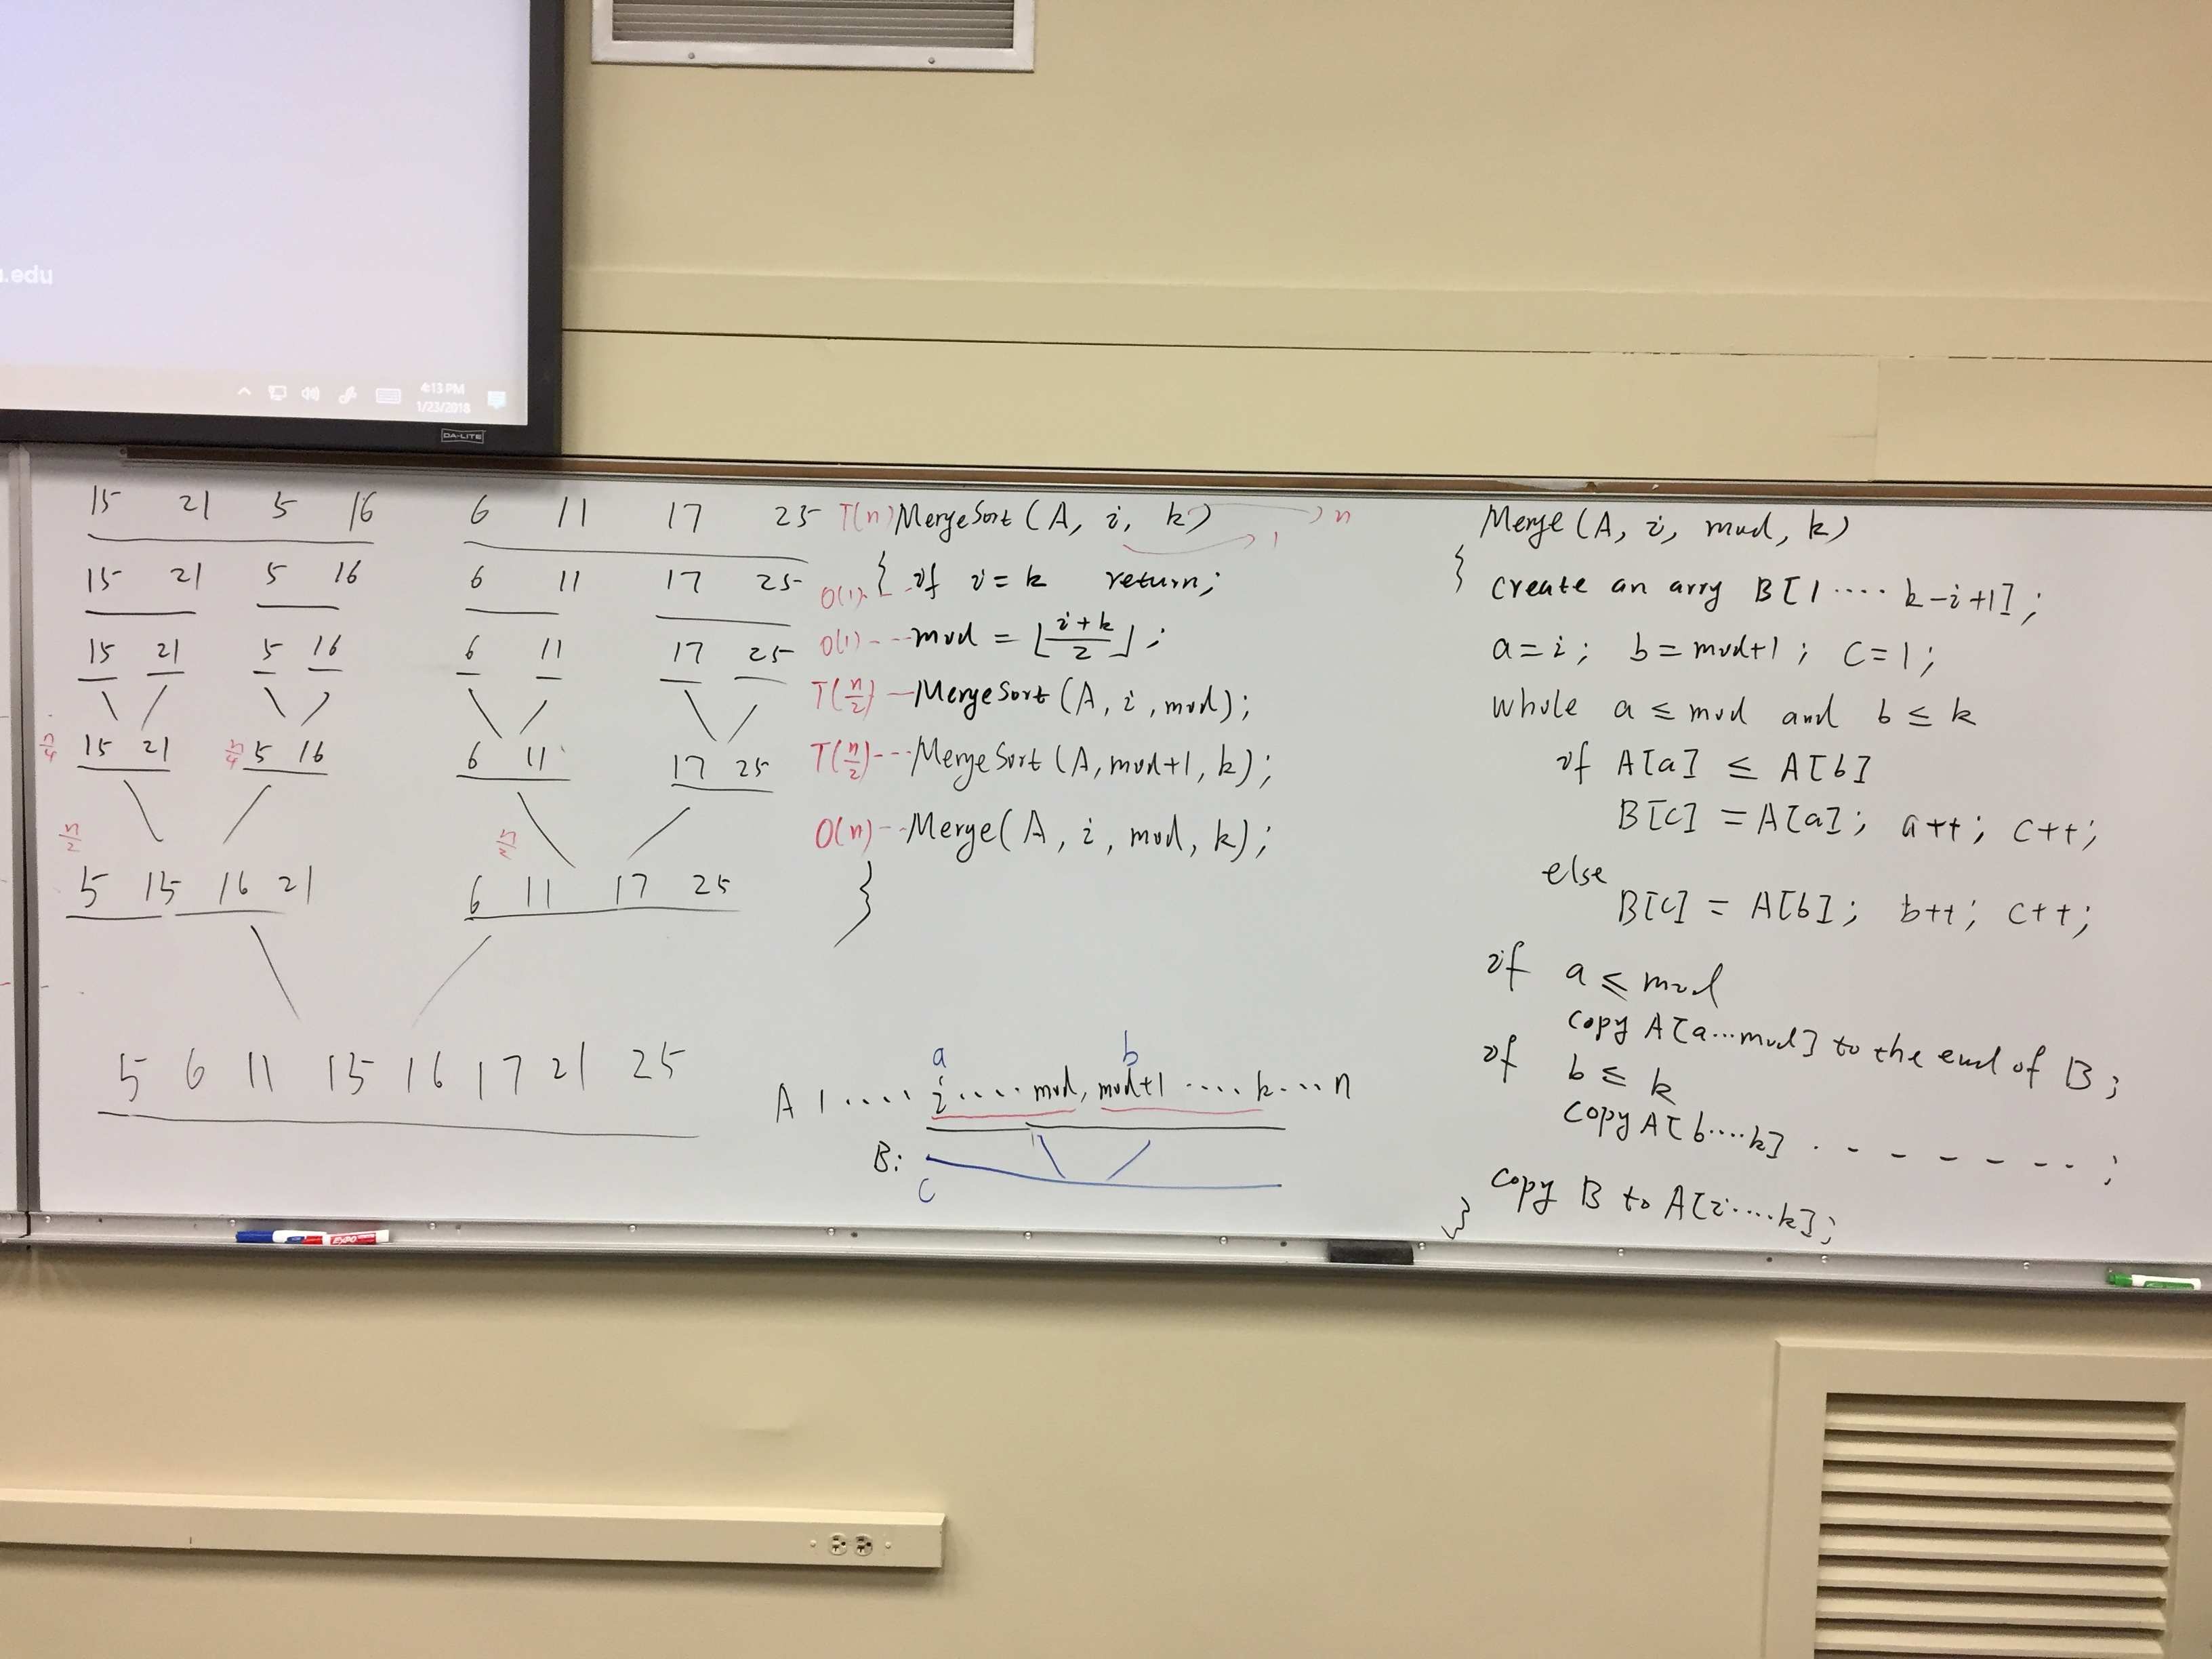 .edu
4:13 PM
1/23/2018
DA-LITE
15 21 5 16 6 11 17 25
15 21 5 16 6 11 17 25
15 21 5 16 6 11 17 25
n/4 15 21 n/4 5 16 6 11 17 25
n/2 n/2
5 15 16 21 6 11 17 25
5 6 11 15 16 17 21 25
T(n) MergeSort (A, i, k) n
1
O(1)-- { if i = k return;
O(1)-- mid = ⌊(i+k)/2⌋;
T(n/2) — MergeSort (A, i, mid);
T(n/2)--- MergeSort (A, mid+1, k);
O(n)--- Merge (A, i, mid, k);
}
a b
A 1 .... i .... mid, mid+1 .... k ... n
B:
c
Merge (A, i, mid, k)
{ Create an arry B[1 .... k-i+1];
a = i; b = mid+1; c = 1;
while a ≤ mid and b ≤ k
if A[a] ≤ A[b]
B[c] = A[a]; a++; c++;
else
B[c] = A[b]; b++; c++;
if a ≤ mid
copy A[a...mid] to the end of B;
if b ≤ k
copy A[b....k] . - - - - - - - ;
copy B to A[i....k];
}
EXPO